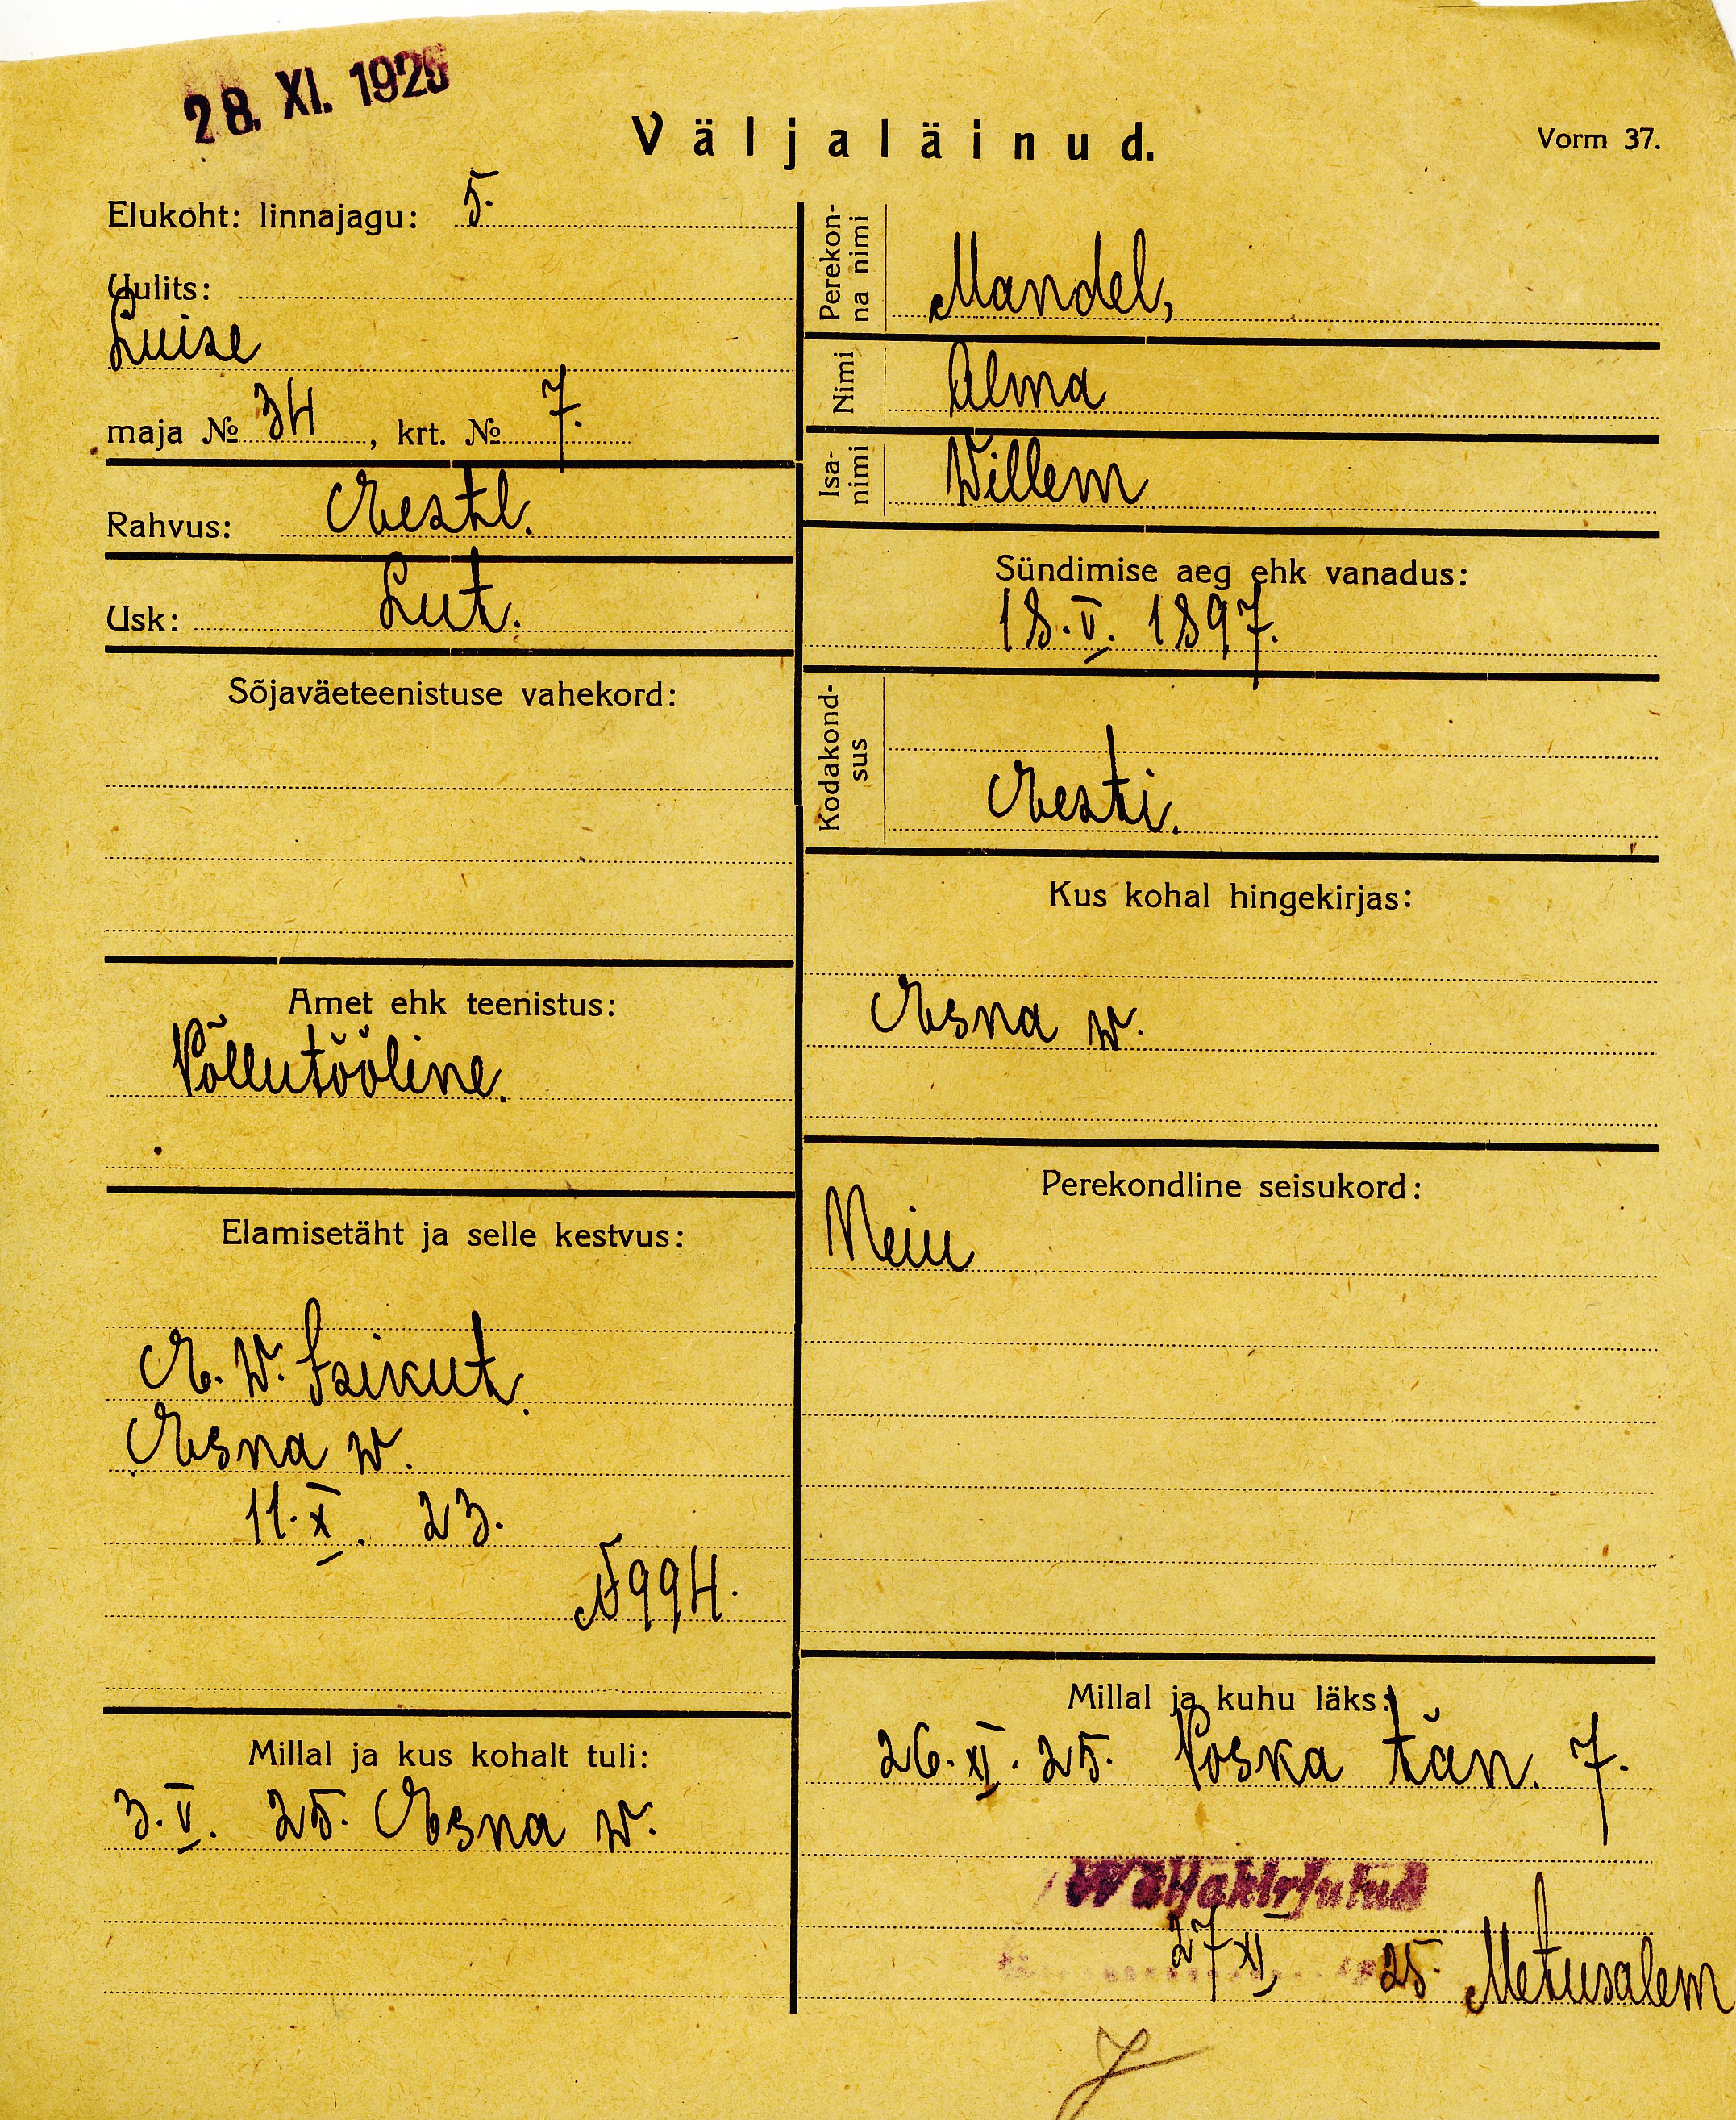 28. XI. 1925
Väljaläinud.
Vorm 37.
Elukoht: linnajagu: 5.
Uulits:
Luise
maja № 34, krt. № 7.
Rahvus: Eestl.
Usk: Lut.
Sõjaväeteenistuse vahekord:
Amet ehk teenistus:
Põllutööline.
Elamisetäht ja selle kestvus:
E. W. Isikut.
Esna w.
11. X. 23.
N994.
Millal ja kus kohalt tuli:
3. V. 25. Esna w.
Perekonna nimi
Mandel,
Nimi
Alma
Isanimi
Willem
Sündimise aeg ehk vanadus:
18. V. 1897.
Kodakondsus
Eesti.
Kus kohal hingekirjas:
Esna w.
Perekondline seisukord:
Neiu
Millal ja kuhu läks:
26. XI. 25. Poska tän. 7.
Wäljakirjutud
27 XI 25. Metusalem